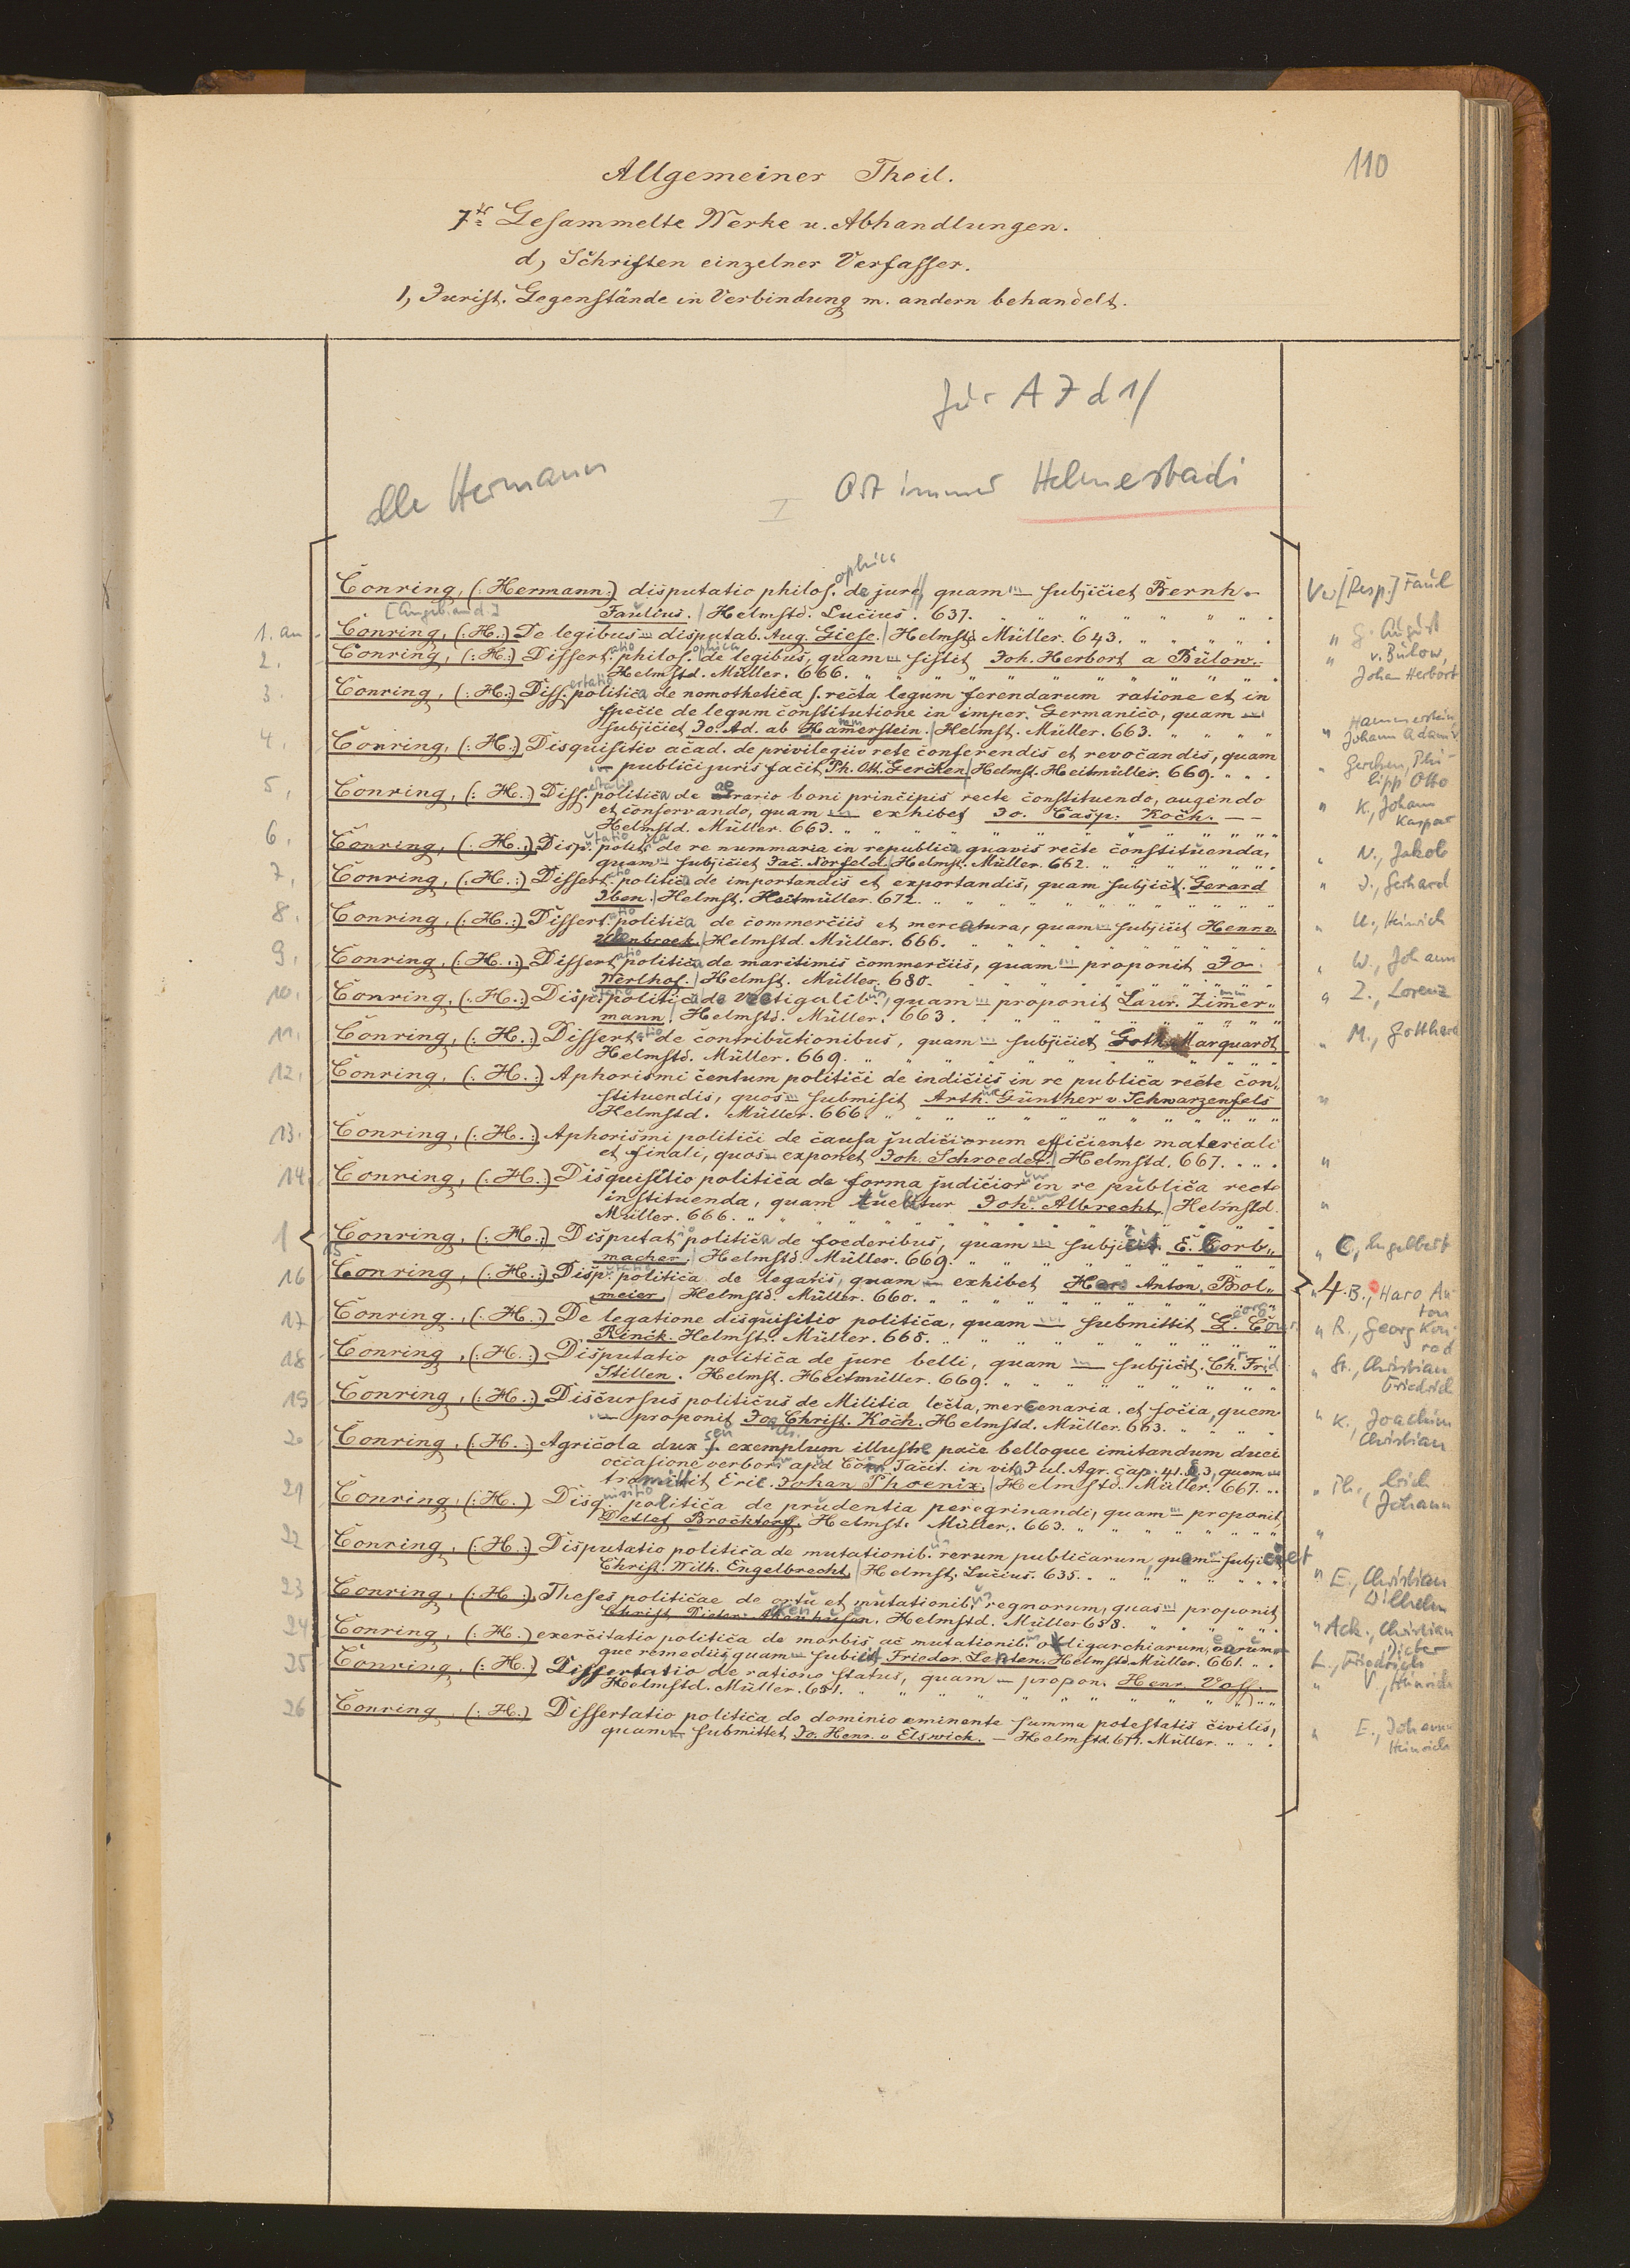 110
Allgemeiner Theil.
7tr Gesammelte Werke u. Abhandlungen.
d, Schriften einzelner Verfasser.
1, Jurist. Gegenstände in Verbindung m. andern behandelt.
für A 7 d 1/
alle Hermann
I Ort immer Helmestadi
Conring, (: Hermann:) disputatio philos.ophica de jure, quam — subjiciet Bernh.
Faulius. / Helmstd. Lucius. 637. Verf[Resp.] Faul
1. an Conring, (: H.:) De legibus — disputab. Aug. Giese. / Helmstd. Müller. 643. " G. August
2. Conring, (: H.:) Dissert.atio philos.ophica de legibus, quam — sistit Joh. Herbort a Bülow. " v. Bülow,
Helmstd. Müller. 666. Johan Herbort
3. Conring, (: H.:) Diss.ertatio politica de nomothetica s. recta legum ferendarum ratione et in
specie de legum constitutione in imper. Germanico, quam — Hammerstein,
subjiciet Jo. Ad. ab Hamerstein. / Helmst. Müller. 663. " Johann Adam v.
4. Conring, (: H.:) Disquisitio acad. de privilegiis rete conferendis et revocandis, quam
— publici juris facit Ph. Ott. Gercken / Helmst. Heitmüller. 669. " Gercken, Philipp Otto
5. Conring, (: H.:) Diss.ertatio politica de aerario boni principis recte constituendo, augendo
et conservando, quam — exhibet Jo. Casp. Koch. — " K., Johann Kaspar
Helmstd. Müller. 663.
6. Conring, (: H.:) Disp.utatio polit.ica de re nummaria in republica quavis recte constituenda,
quam — subjiciet Jac. Norfeld. / Helmst. Müller. 662. " N., Jakob
7. Conring, (: H.:) Dissert.atio politica de importandis et exportandis, quam subjicit. Gerard
Iben. / Helmst. Heitmüller. 672. " I., Gerhard
8. Conring, (: H.:) Dissert.atio politica de commerciis et mercatura, quam — subjicit Henr.
Ulenbrock. / Helmstd. Müller. 666. " U., Heinrich
9. Conring, (: H.:) Dissert.atio politica de maritimis commerciis, quam — proponit Jo.
Werlhof. / Helmst. Müller. 680. " W., Johann
10. Conring, (: H.:) Disp.utatio politica de vectigalib.us, quam — proponit Laur. Zimmer"
mann. / Helmstd. Müller. 663. " Z., Lorenz
11. Conring, (: H.:) Dissert.atio de contributionibus, quam — subjiciet Goth. Marquardt
Helmstd. Müller. 669. " M., Gotthard
12. Conring, (: H.:) Aphorismi centum politici de indiciis in re publica recte con"
stituendis, quos — submisit Arth. Günther v. Schwarzenfels "
Helmstd. Müller. 666.
13. Conring, (: H.:) Aphorismi politici de causa judiciorum efficiente materiali
et finali, quos — exponet Joh. Schroeder. / Helmstd. 667. "
14. Conring, (: H.:) Disquisitio politica de forma judicior.um in re publica recte
instituenda, quam tuebitur Joh. Albrecht. / Helmstd. "
Müller. 666.
15 Conring, (: H.:) Disputatio politica de foederibus, quam — subjicit. E. Corb"
macher. / Helmstd. Müller. 669. " C., Engelbert
16 Conring, (: H.:) Disp.utatio politica de legatis, quam — exhibet Haro Anton. Bol"
meier / Helmstd. Müller. 660. " 4. B., Haro Anton
17 Conring, (: H.:) De legatione disquisitio politica, quam — submittit G. Conr.
Rinck. Helmst. Müller. 668. " R., Georg Konrad
18 Conring, (: H.:) Disputatio politica de jure belli, quam — subjicit. Ch. Frid.
Stillen. Helmst. Heitmüller. 669. " St. Christian Friedrich
19 Conring, (: H.:) Discursus politicus de Militia lecta, mercenaria et socia, quem
— proponit Joa Christ. Koch. Helmstd. Müller. 663. " K., Joachim Christian
20 Conring, (: H.:) Agricola dux s. exemplum illustre pace belloque imitandum duci
occasione verbor. apud Corn. Tacit. in vita Jul. Agr. cap. 41. §. 3, quem —
tramittit Eric. Johan Phoenix. / Helmstd. Müller. 667. " Ph., Erich Johann
21 Conring, (: H.:) Disq.uisitio politica de prudentia peregrinandi, quam — proponit
Detlef Brocktorff. Helmst. Müller. 663. "
22 Conring, (: H.:) Disputatio politica de mutationib.us rerum publicarum, quam — subjiciet
Christ. Wilh. Engelbrecht. / Helmst. Lucius. 635. " E., Christian Wilhelm
23 Conring, (: H.:) Theses politicae de ortu et mutationib.us regnorum, quas — proponit
Christ. Dieter. Helmstd. Müller 658. " Ack., Christian Dieter
24 Conring, (: H.:) exercitatio politica de morbis ac mutationib.us oligarchiarum, earum
que remediis, quam — subiicit Frieder. Lenten. Helmstd. Müller. 661. L., Friedrich
25 Conring, (: H.:) Dissertatio de ratione status, quam — propon. Henr. Voss.
Helmstd. Müller. 651. " V., Heinrich
26 Conring, (: H.:) Dissertatio politica de dominio eminente summa potestatis civilis,
quam — submittet, Jo. Henr. v Elswick. — Helmstd. 677. Müller. " E., Johann Heinrich